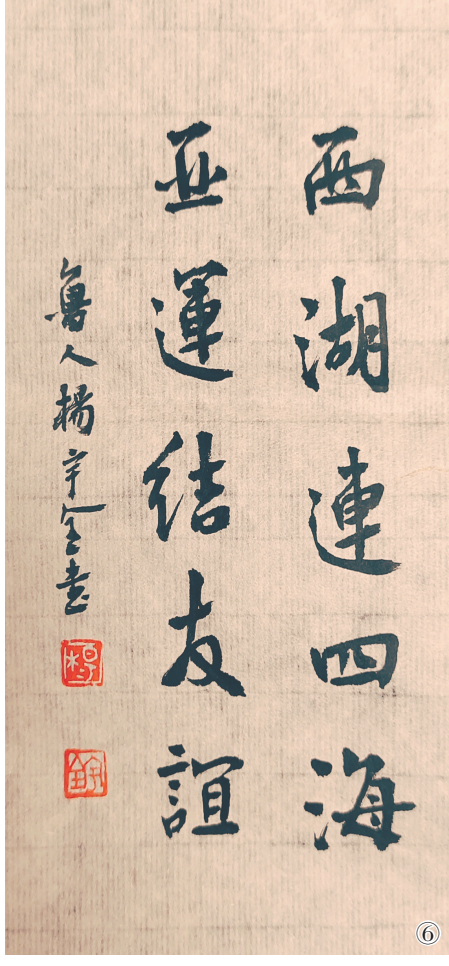 西湖連四海
亚運结友誼
魯人楊宇全書
⑥